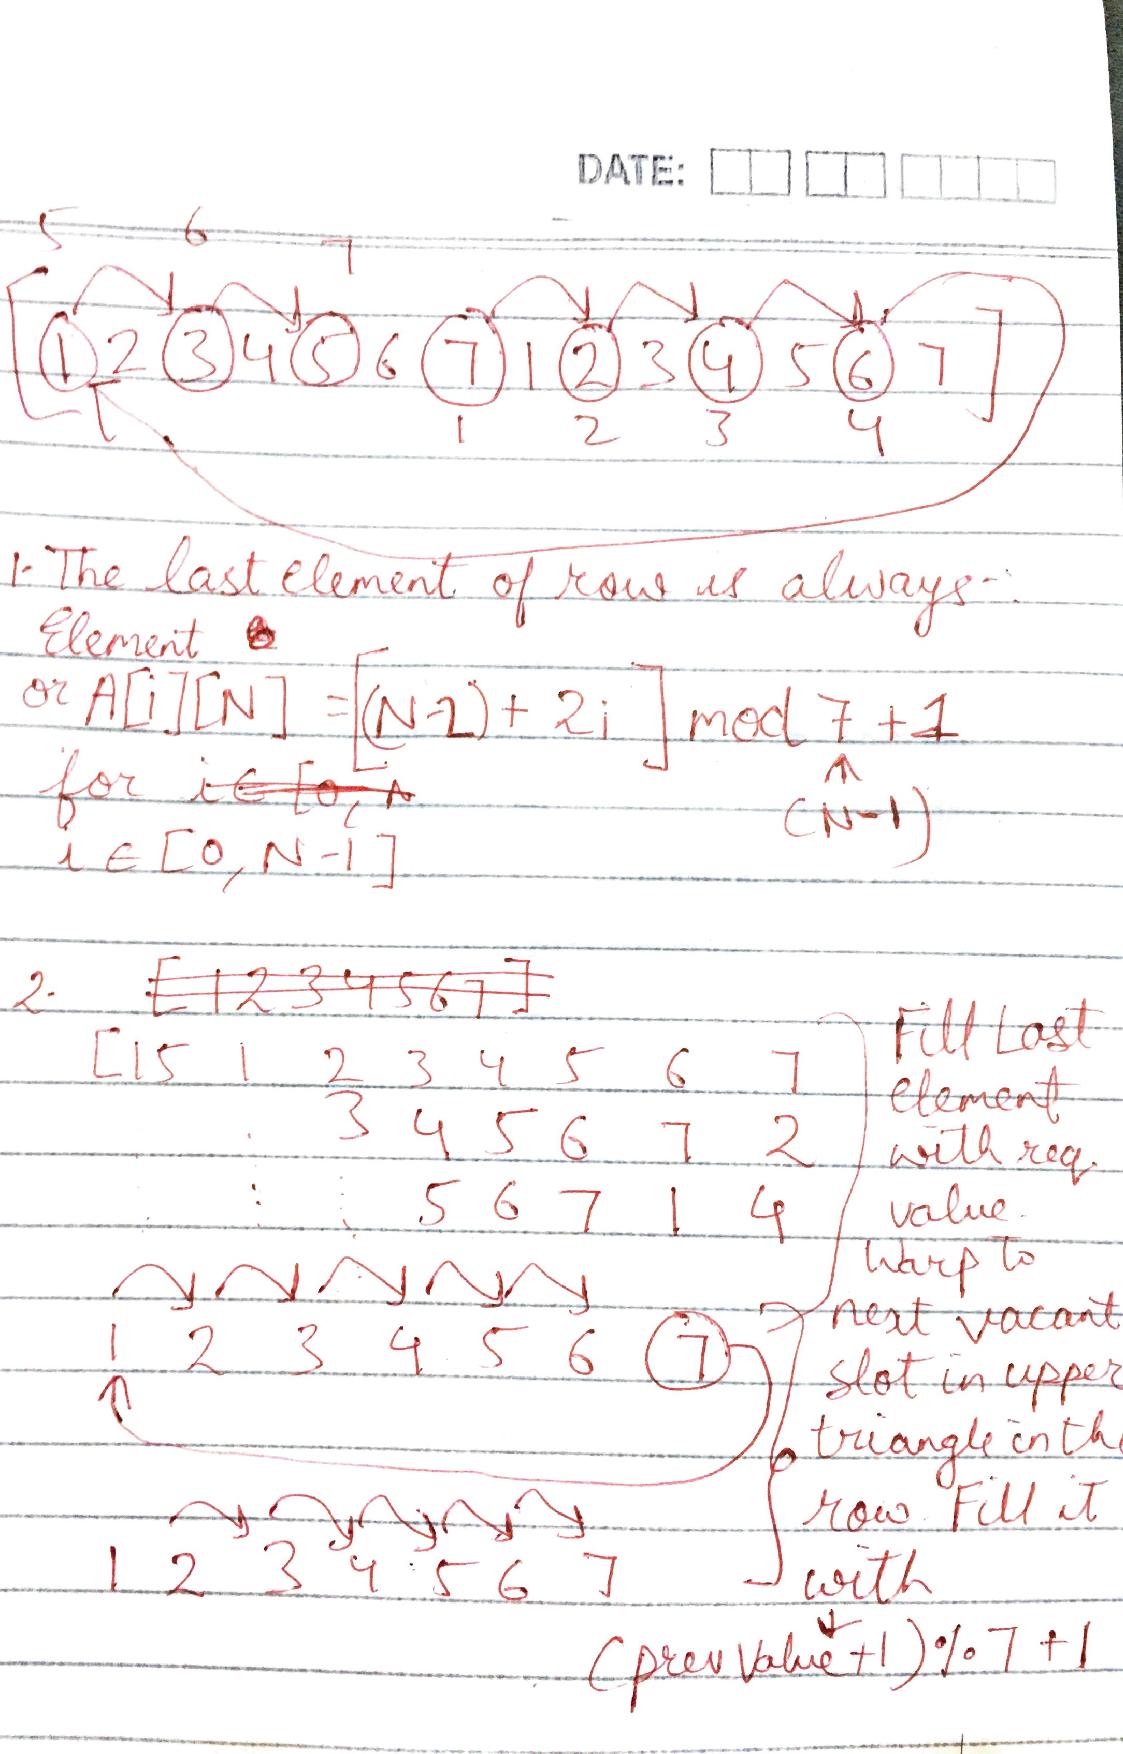 DATE:
5 6 7
[1 2 3 4 5 6 7 1 2 3 4 5 6 7]
1 2 3 4
1- The last element of row is always-:
Element
or A[i][N] = [(N-2) + 2i] mod 7 + 1
for i ∈ [0, N
(N-1)
i ∈ [0, N-1]
2- [1 2 3 4 5 6 7]
[15 1 2 3 4 5 6 7
3 4 5 6 7 2
5 6 7 1 4
1 2 3 4 5 6 7
1 2 3 4 5 6 7
Fill Last
element
with req.
value.
Warp to
next vacant
slot in upper
triangle in the
row. Fill it
with
(prev Value+1)%7+1